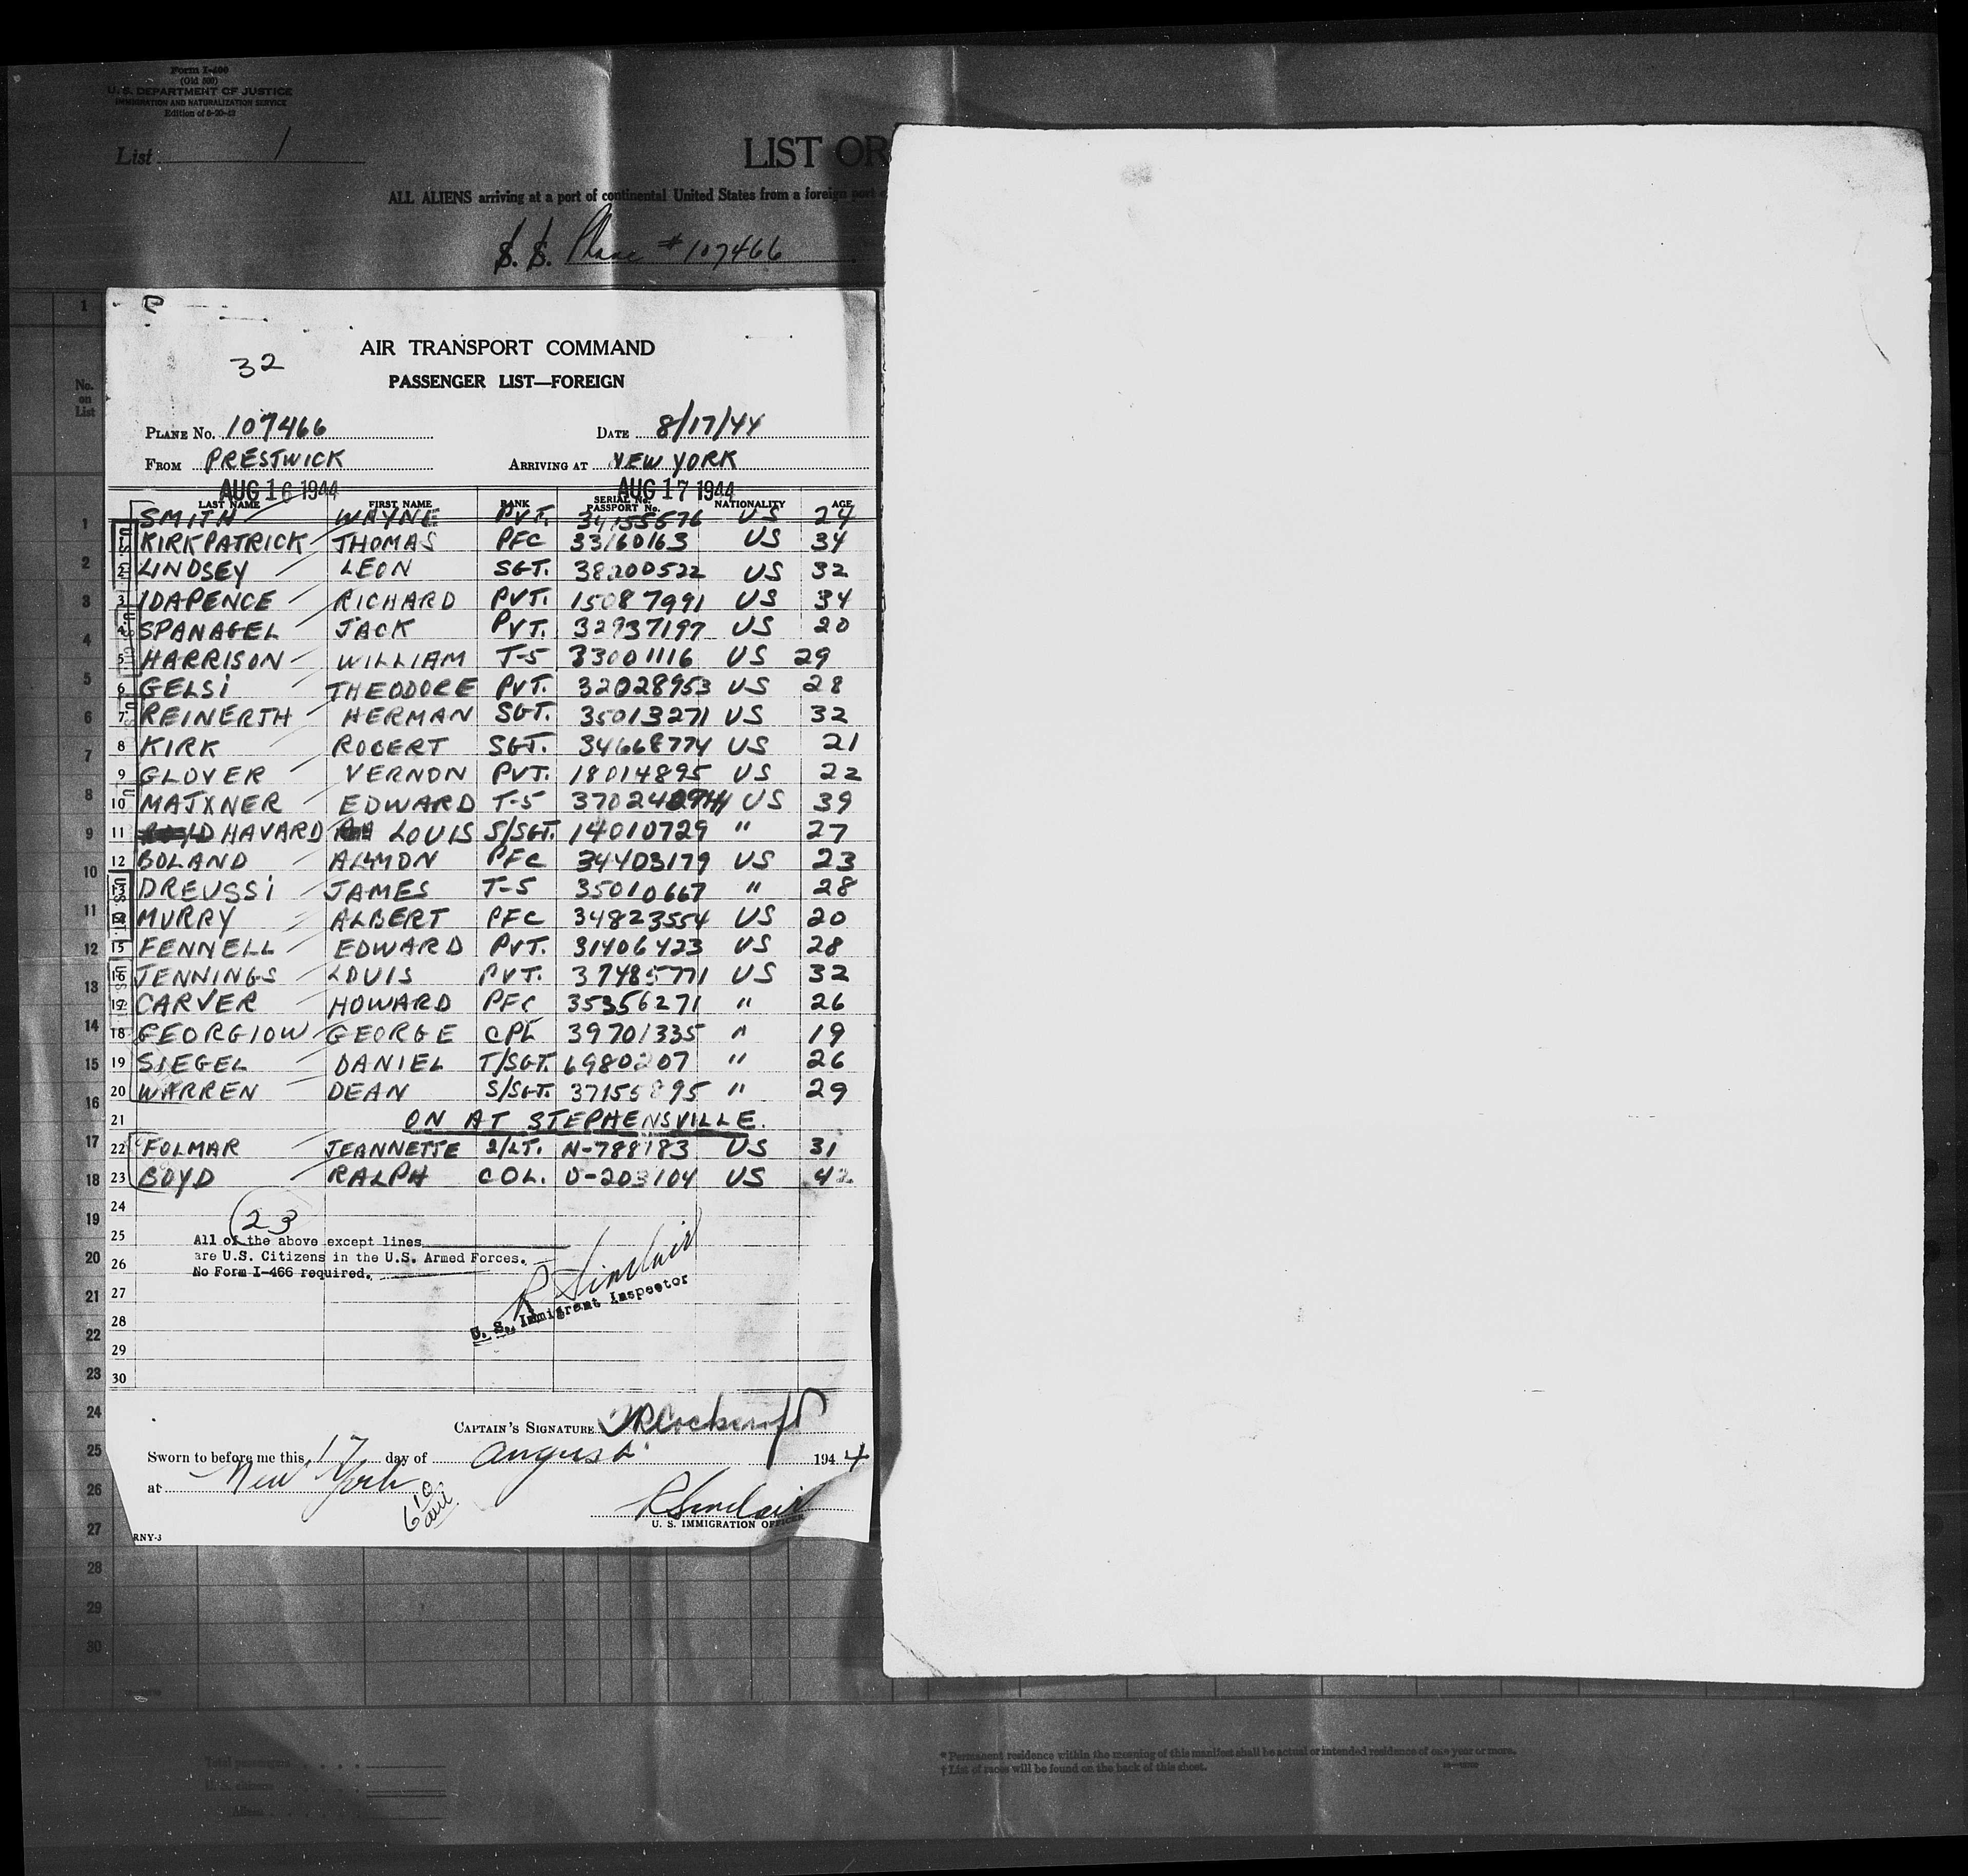 Form I-400
(Old 500)
U. S. DEPARTMENT OF JUSTICE
IMMIGRATION AND NATURALIZATION SERVICE
Edition of 8-20-42
List 1
LIST OR
ALL ALIENS arriving at a port of continental United States from a foreign port
S. S. Plane # 107466
No. on List
32
AIR TRANSPORT COMMAND
PASSENGER LIST—FOREIGN
PLANE NO. 107466 DATE 8/17/44
FROM PRESTWICK ARRIVING AT NEW YORK
AUG 16 1944 AUG 17 1944
LAST NAME FIRST NAME RANK SERIAL No. PASSPORT No. NATIONALITY AGE
SMITH WAYNE PVT. 34155576 US 24
1 KIRKPATRICK THOMAS PFC 33160163 US 34
2 LINDSEY LEON SGT. 38200522 US 32
3 IDAPENCE RICHARD PVT. 15087991 US 34
4 SPANAGEL JACK PVT. 32937197 US 20
5 HARRISON WILLIAM T-5 33001116 US 29
6 GELSI THEODORE PVT. 32028953 US 28
7 REINERTH HERMAN SGT. 35013271 US 32
8 KIRK ROBERT SGT. 34668774 US 21
9 GLOVER VERNON PVT. 18014895 US 22
10 MAJXNER EDWARD T-5 US 39
11 HAVARD LOUIS S/SGT. 14010729 " 27
12 BOLAND ALMON PFC 34403179 US 23
13 DREUSSI JAMES T-5 35010667 " 28
14 MURRY ALBERT PFC 34823554 US 20
15 FENNELL EDWARD PVT. 31406423 US 28
16 JENNINGS LOUIS PVT. 37485771 US 32
17 CARVER HOWARD PFC 35356271 " 26
18 GEORGIOW GEORGE CPL 39701335 " 19
19 SIEGEL DANIEL T/SGT. 6980207 " 26
20 WARREN DEAN S/SGT. " 29
21 ON AT STEPHENSVILLE.
22 FOLMAR JEANNETTE 2/LT. N-788183 US 31
23 BOYD RALPH COL. O-203104 US 42
24
23
25 All of the above except lines
are U.S. Citizens in the U.S. Armed Forces.
26 No Form I-466 required.
R Sinclair
27 U. S. Immigrant Inspector
28
29
30
CAPTAIN'S SIGNATURE
Sworn to before me this 17 day of August 1944
at New York
6 10 am
R Sinclair
U. S. IMMIGRATION OFFICER
RNY-3
Total passengers
U.S. citizens
Aliens
* Permanent residence within the meaning of this manifest shall be actual or intended residence of one year or more.
† List of races will be found on the back of this sheet.